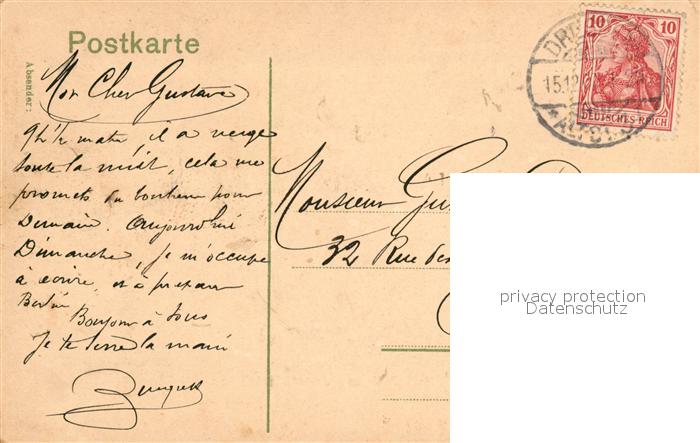 Postkarte
Absender:
Mon Cher Gustave
9h ½ matin, il a neigé
toute la nuit, cela me
promets du bonheur pour
Demain. Aujourd'hui
Dimanche, Je m'occupe
à écrire, et à
Berlin
Bonjour à tous
Je te serre la main
Monsieur
32 Rue des
10 10
DEUTSCHES REICH
DR
15.12
ALTST.
privacy protection
Datenschutz